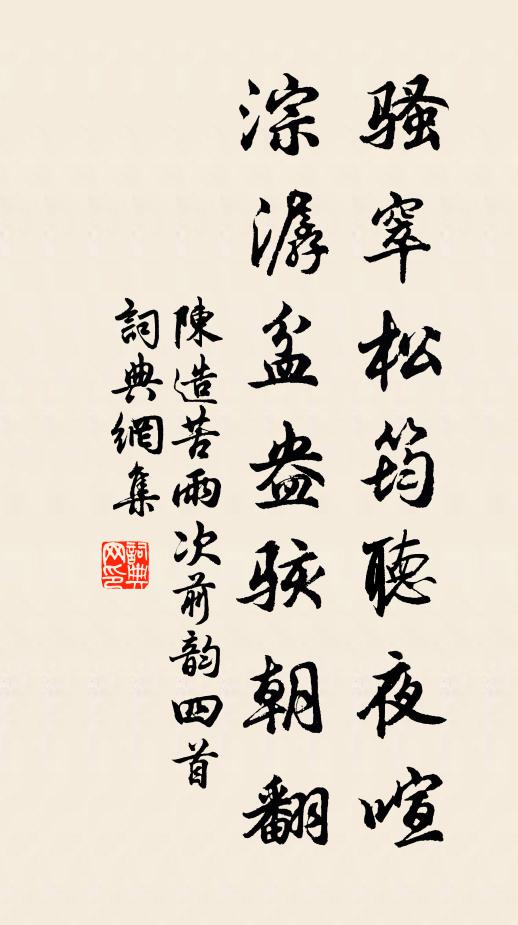 騷窣松筠聽夜喧
淙潺盆盎駭朝翻
陳造苦雨次前韵四首
詞典網集
詞典
网印